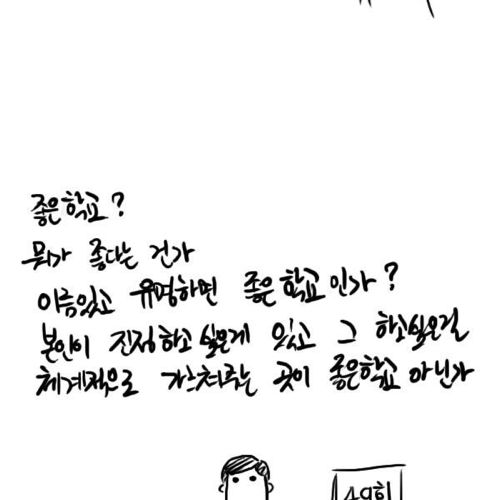 좋은학교?
뭐가 좋다는 건가
이름있고 유명하면 좋은학교인가?
본인이 진정하고싶은게 있고 그 하고싶은걸
체계적으로 가르쳐주는 곳이 좋은학교 아닌가
49회